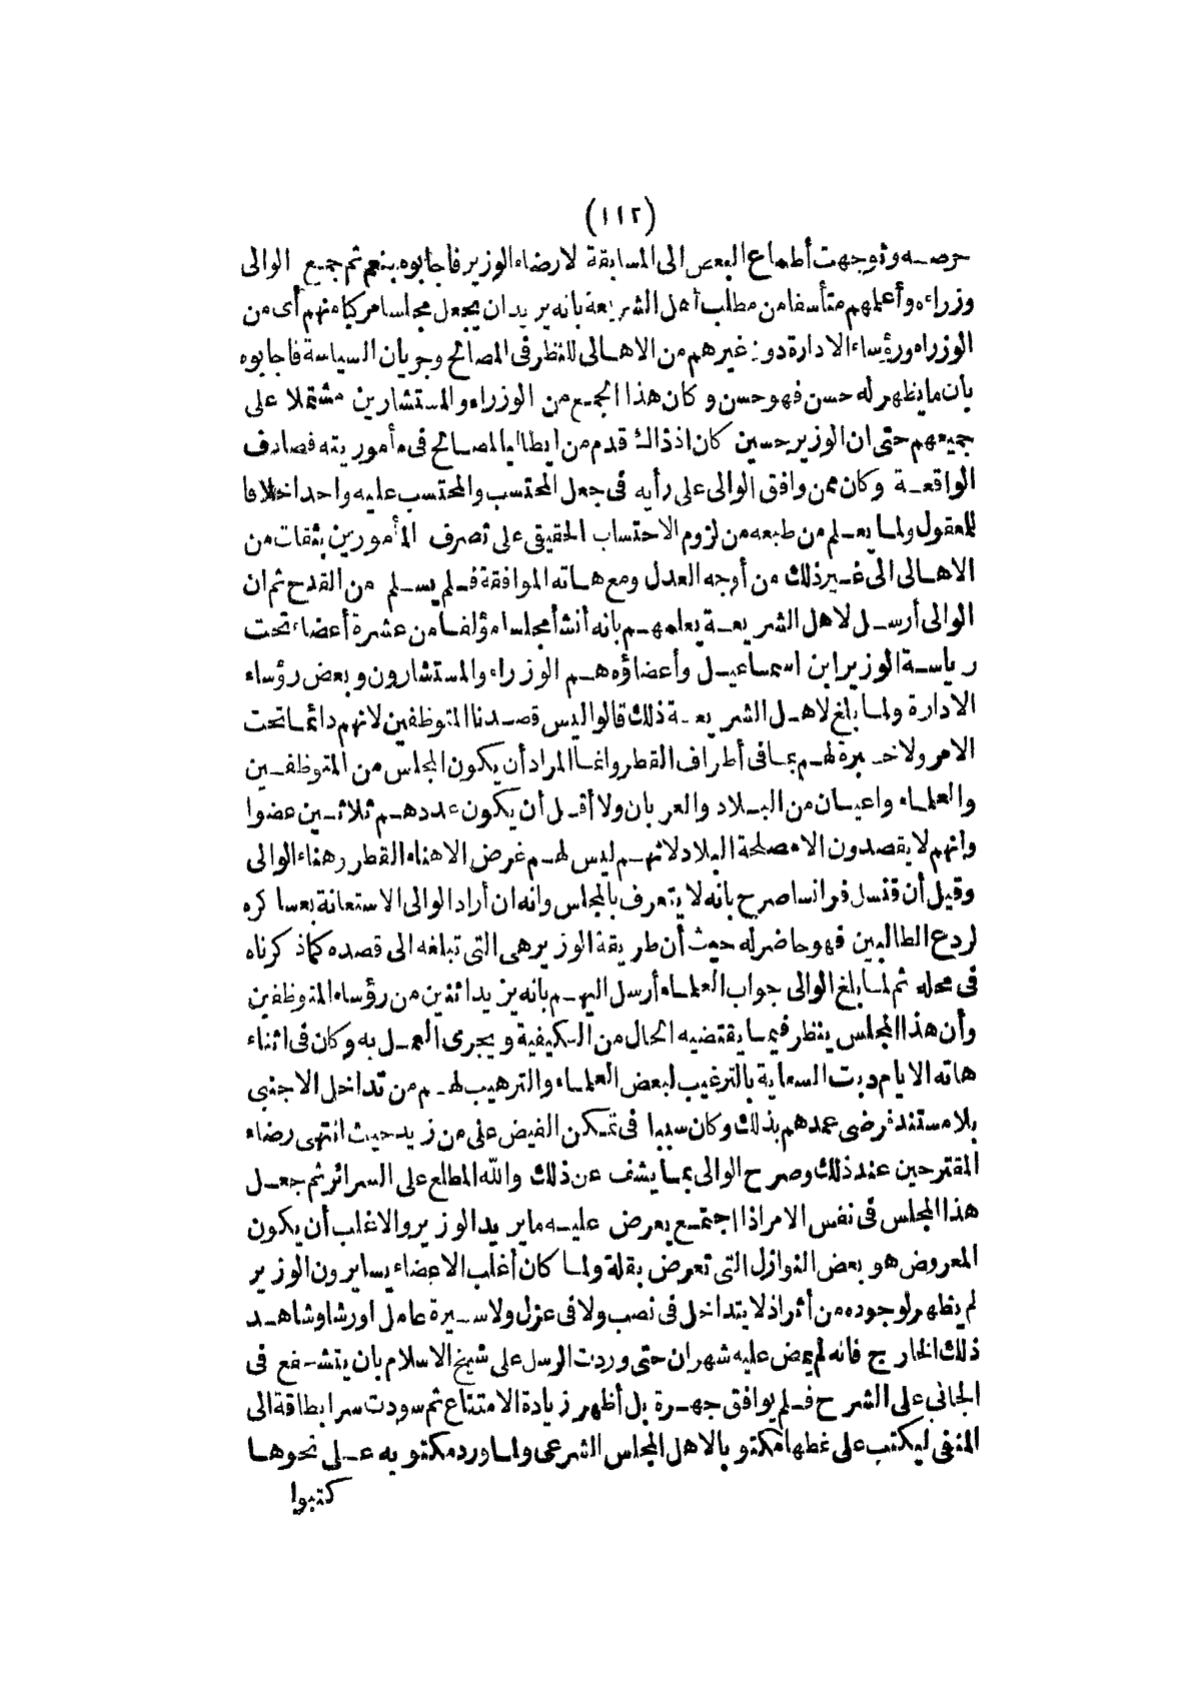 (١١٢)
حرصه وتوجهت أطماع البعض الى المسابقة لارضاء الوزير فاجابوه بنعم ثم جميع الوالى
وزراءه وأعلمهم متأسفا من مطلب أهل الشريعة بانه يريد ان يجعل مجلسا مركبا منهم أى من
الوزراء ورؤساء الادارة دون غيرهم من الاهالى للنظر فى المصالح وجريان السياسة فاجابوه
بأن ما يظهر له حسن فهو حسن وكان هذا الجمع من الوزراء والمستشارين مشتملا على
جميعهم حتى ان الوزير حسين كان اذذاك قدم من ايطاليا لمصالح فى مأموريته فصادف
الواقعة وكان ممن وافق الوالى على رأيه فى جعل المحتسب والمحتسب عليه واحدا خلافا
للعقول ولما يعلم من طبعه من لزوم الاحتساب الحقيقى على تصرف المأمورين بثقات من
الاهالى الى غير ذلك من أوجه العدل ومع هاته الموافقة فلم يسلم من القدح ثم ان
الوالى أرسل لاهل الشريعة يعلمهم بانه أنشأ مجلسا مؤلفا من عشرة أعضاء تحت
رياسة الوزير ابن اسماعيل وأعضاؤه هم الوزراء والمستشارون وبعض رؤساء
الادارة ولما بلغ لاهل الشريعة ذلك قالوا ليس قصدنا المتوظفين لانهم دائما تحت
الامر ولا خبرة لهم بما فى أطراف القطر وانما المراد أن يكون المجلس من المتوظفين
والعلماء واعيان من البلاد والعربان ولا أقل أن يكون عددهم ثلاثين عضوا
وانهم لا يقصدون الا مصلحة البلاد لانهم ليس لهم غرض الا هناء القطر وهناء الوالى
وقيل أن قنسل فرانسا صرح بانه لا يتعرف بالمجلس وانه ان أراد الوالى الاستعانة بعساكره
لردع الطالبين فهو حاضر له حيث أن طريقة الوزير هى التى تبلغه الى قصده كما ذكرناه
فى محله ثم لما بلغ الوالى جواب العلماء أرسل اليهم بانه يزيد اثنين من رؤساء المتوظفين
وأن هذا المجلس ينظر فيما يقتضيه الحال من الكيفية ويجرى العمل به وكان فى اثناء
هاته الايام دبت السعاية بالترغيب لبعض العلماء والترهيب لهم من تداخل الاجنبى
بلا مستند فرضى عمدهم بذلك وكان سببا فى تمكن الغيض على من زيد حيث انتهى رضاء
المقترحين عند ذلك وصرح الوالى بما يشف عن ذلك والله المطلع على السرائر ثم جعل
هذا المجلس فى نفس الامر اذا اجتمع يعرض عليه ما يريد الوزير والاغلب أن يكون
المعروض هو بعض النوازل التى تعرض بقلة ولما كان أغلب الاعضاء يسايرون الوزير
لم يظهر لوجوده من أثر اذ لا يتداخل فى نصب ولا فى عزل ولا سيرة عامل او رشا وشاهد
ذلك الخارج فانه لم يمض عليه شهران حتى وردت الرسل على شيخ الاسلام بان يتشفع فى
الجانى على الشرح فلم يوافق جهرة بل أظهر زيادة الامتناع ثم سودت سرا بطاقة الى
المنفى ليكتب على غطها مكتوبا لاهل المجلس الشرعى ولما ورد مكتوبه على نحوها
كتبوا